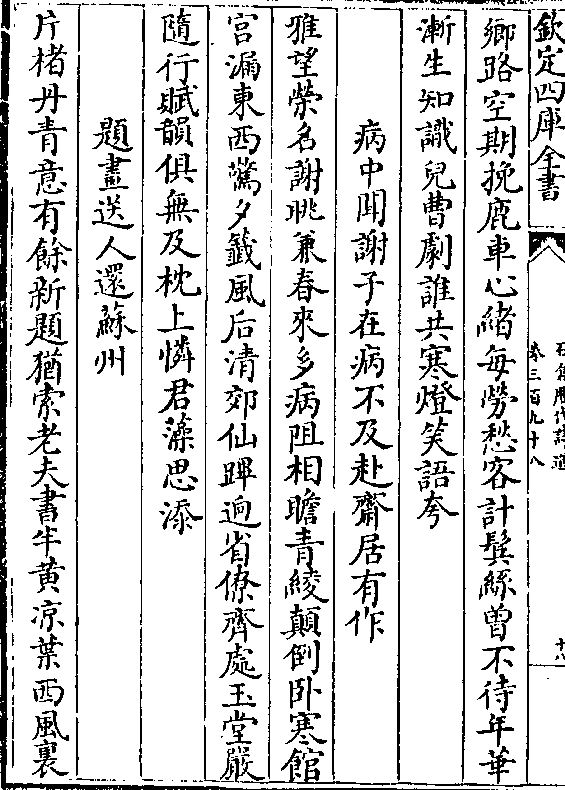 欽定四庫全書
石倉歷代詩選
卷三百九十八
十八
鄉路空期挽鹿車心緒每勞愁客計鬂絲曾不待年華
漸生知識兒曹劇誰共寒燈笑語夸
病中聞謝子在病不及赴齋居有作
雅望榮名謝眺兼春來多病阻相瞻青綾顛倒卧寒館
宫漏東西驚夕籖風后清郊仙蹕逈省僚齊處玉堂嚴
隨行賦韻俱無及枕上憐君藻思添
題畫送人還蘇州
片楮丹青意有餘新題猶索老夫書半黄凉葉西風裏